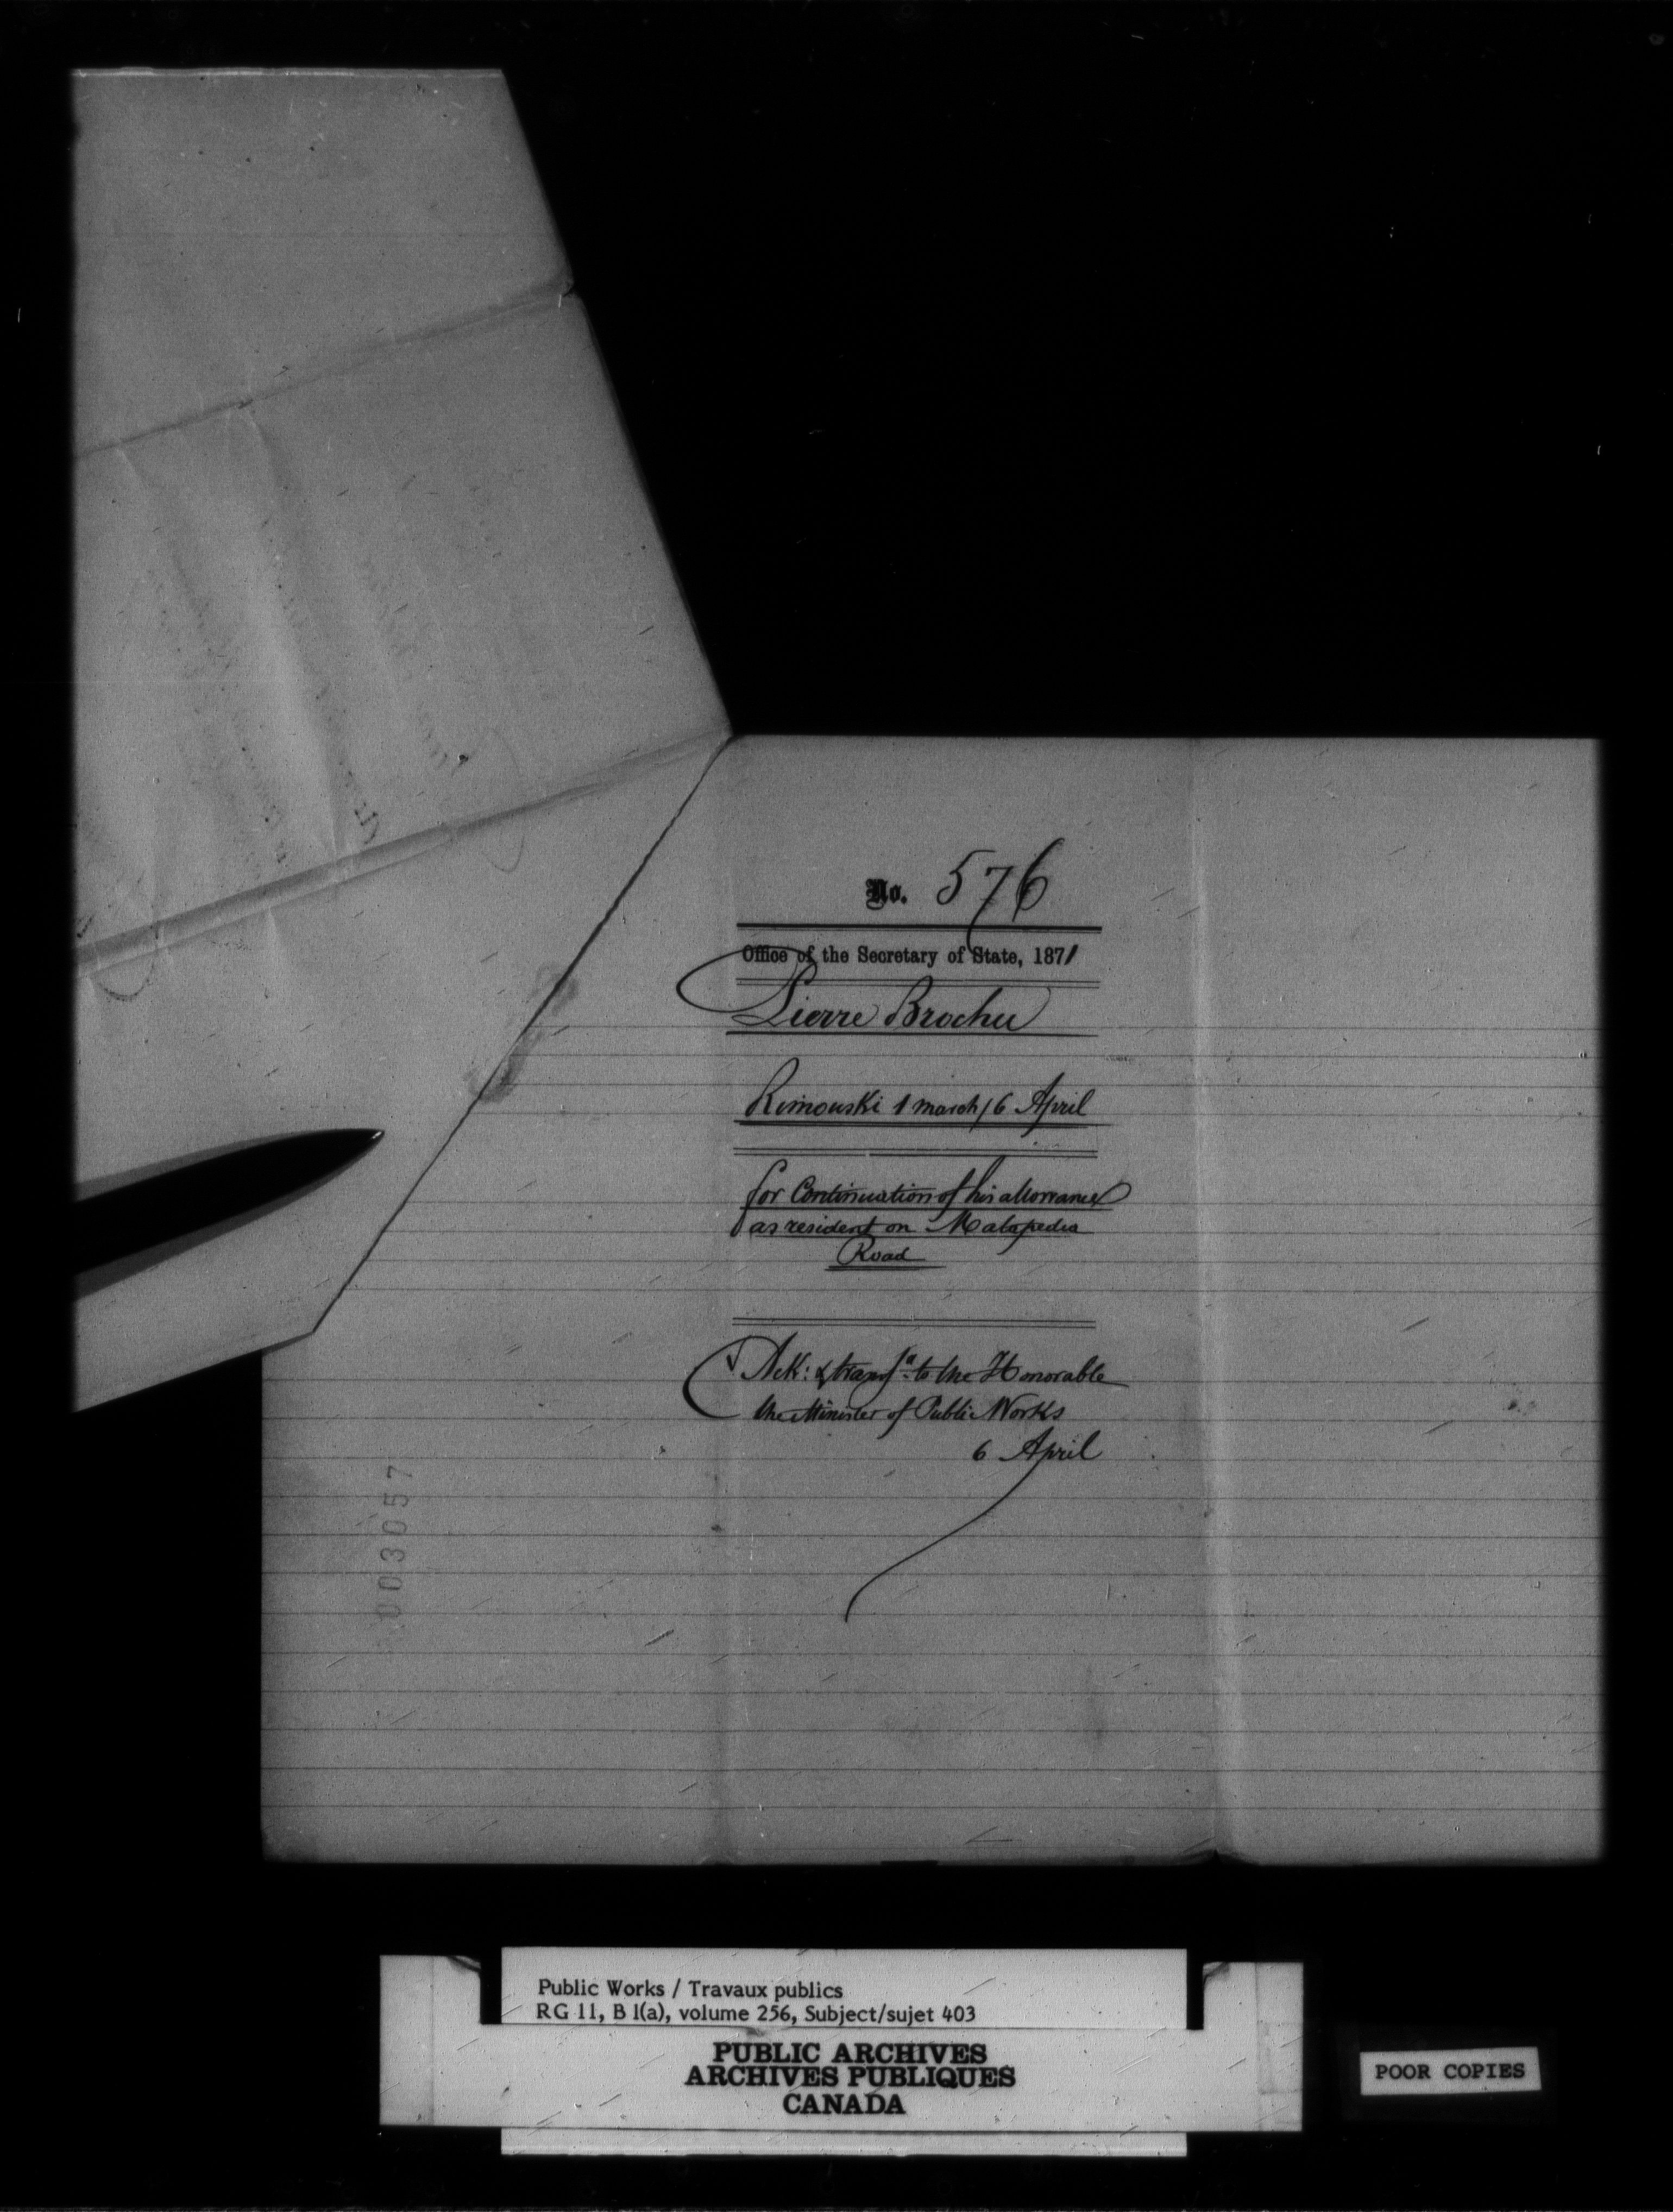 No. 576
Office of the Secretary of State, 1871
Pierre Brochu
Rimouski 1 march / 6 April
for Continuation of his allowance
as resident on Matapedia
Road
Ack: & transf.d to the Honorable
the Minister of Public Works
6 April
003057
Public Works / Travaux publics
RG 11, B 1(a), volume 256, Subject/sujet 403
PUBLIC ARCHIVES
ARCHIVES PUBLIQUES
CANADA
POOR COPIES